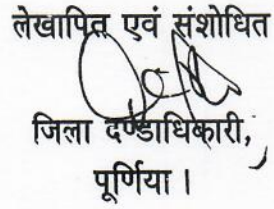 लेखापित एवं संशोधित
जिला दण्डाधिकारी,
पूर्णिया ।